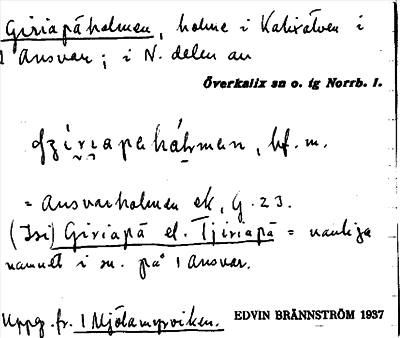 Giriapäholmen, holme i Kalixälven i
1 Ansvar; i N. delen av
Överkalix sn o. tg Norrb. l.
bf. m.
= Ansvarholmen ek, G. 23.
(Isi) Giriapä el. Tjiriapä = vanliga
namnet i sn. på 1 Ansvar.
Uppg. fr. 1 Mjölamyrviken. EDVIN BRÄNNSTRÖM 1937